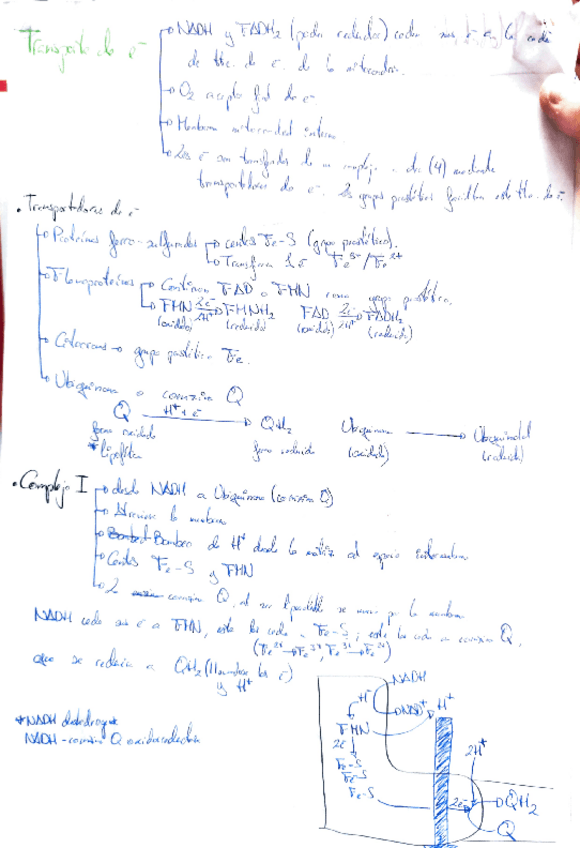 Transporte de e⁻
NADH y FADH₂ (poder reductor) ceden sus e⁻ en la cadena
de tte. de e⁻ de la mitocondria.
O₂ receptor final de e⁻
Membrana mitocondrial interna
Los e⁻ son transferidos de un complejo a otro (4) mediante
transportadores de e⁻. Los grupos prostéticos facilitan este tte. de e⁻
• Transportadores de e⁻
Proteínas ferro-sulfuradas → centros Fe-S (grupo prostético).
Transfieren 1e⁻ Fe³⁺/Fe²⁺
Flavoproteínas → Contienen FAD o FMN como grupo prostético.
FMN 2e⁻ 2H⁺ → FMNH₂ FAD 2e⁻ 2H⁺ → FADH₂
(oxidado) (reducido) (oxidado) (reducido)
Citocromos → grupo prostético Fe.
Ubiquinona o coenzima Q
Q H⁺ + e⁻ → QH₂ Ubiquinona → Ubiquinol
forma oxidada forma reducida (oxidada) (reducida)
* Lipofílica
• Complejo I → desde NADH a Ubiquinona (coenzima Q)
Atraviesa la membrana
Bombeo de H⁺ desde la matriz al espacio intermembrana
Centros Fe-S y FMN
coenzima Q, al ser liposoluble se mueve por la membrana
NADH cede sus e⁻ a FMN, este los cede a Fe-S; este los cede a coenzima Q,
(Fe²⁺→Fe³⁺, Fe³⁺→Fe²⁺)
que se reduce a QH₂ (llevándose los e⁻
y H⁺)
* NADH deshidrog*
NADH-coenzima Q oxidorreductasa
NADH
H⁺ NAD⁺ H⁺
FMN
2e⁻
Fe-S
Fe-S
Fe-S
2H⁺
2e⁻ QH₂
Q